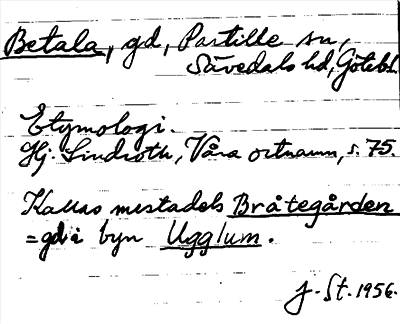 Betala, gd, Partille sn,
Sävedals hd, Götebl.
Etymologi.
Hj. Lindroth, Våra ortnamn, s. 75.
Kallas mestadels Bråtegården
= gd i byn Ugglum.
J. St. 1956.